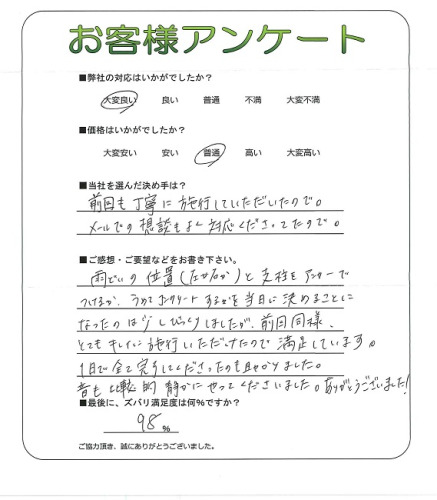 お客様アンケート
■弊社の対応はいかがでしたか？
大変良い 良い 普通 不満 大変不満
■価格はいかがでしたか？
大変安い 安い 普通 高い 大変高い
■当社を選んだ決め手は？
前回も丁寧に施行していただいたので。
メールでの相談もよく対応くださってたので。
■ご感想・ご要望などをお書き下さい。
雨どいの位置（左か右か）と支柱をアンカーで
つけるか、うめてコンクリートするかを当日に決めることに
なったのは少しびっくりしましたが、前回同様、
とてもキレイに施行いただけたので満足しています。
1日で全て完了してくださったのも助かりました。
音も比較的静かにやってくださいました。ありがとうございました！
■最後に、ズバリ満足度は何％ですか？
98％
ご協力頂き、誠にありがとうございました。